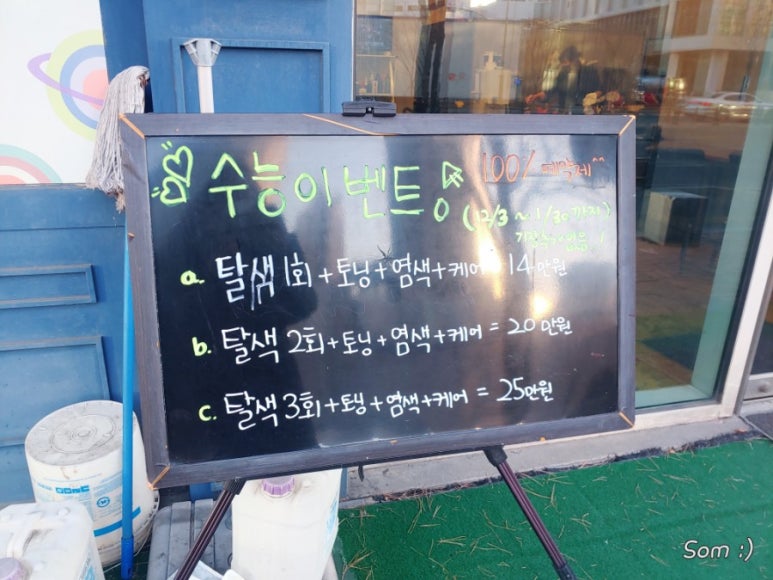 수능이벤트 100% 예약제^^
(12/3 ~ 1/30 까지)
기장추가없음!
a. 탈색 1회 + 토닝 + 염색 + 케어 = 14만원
b. 탈색 2회 + 토닝 + 염색 + 케어 = 20만원
c. 탈색 3회 + 토닝 + 염색 + 케어 = 25만원
Som :)